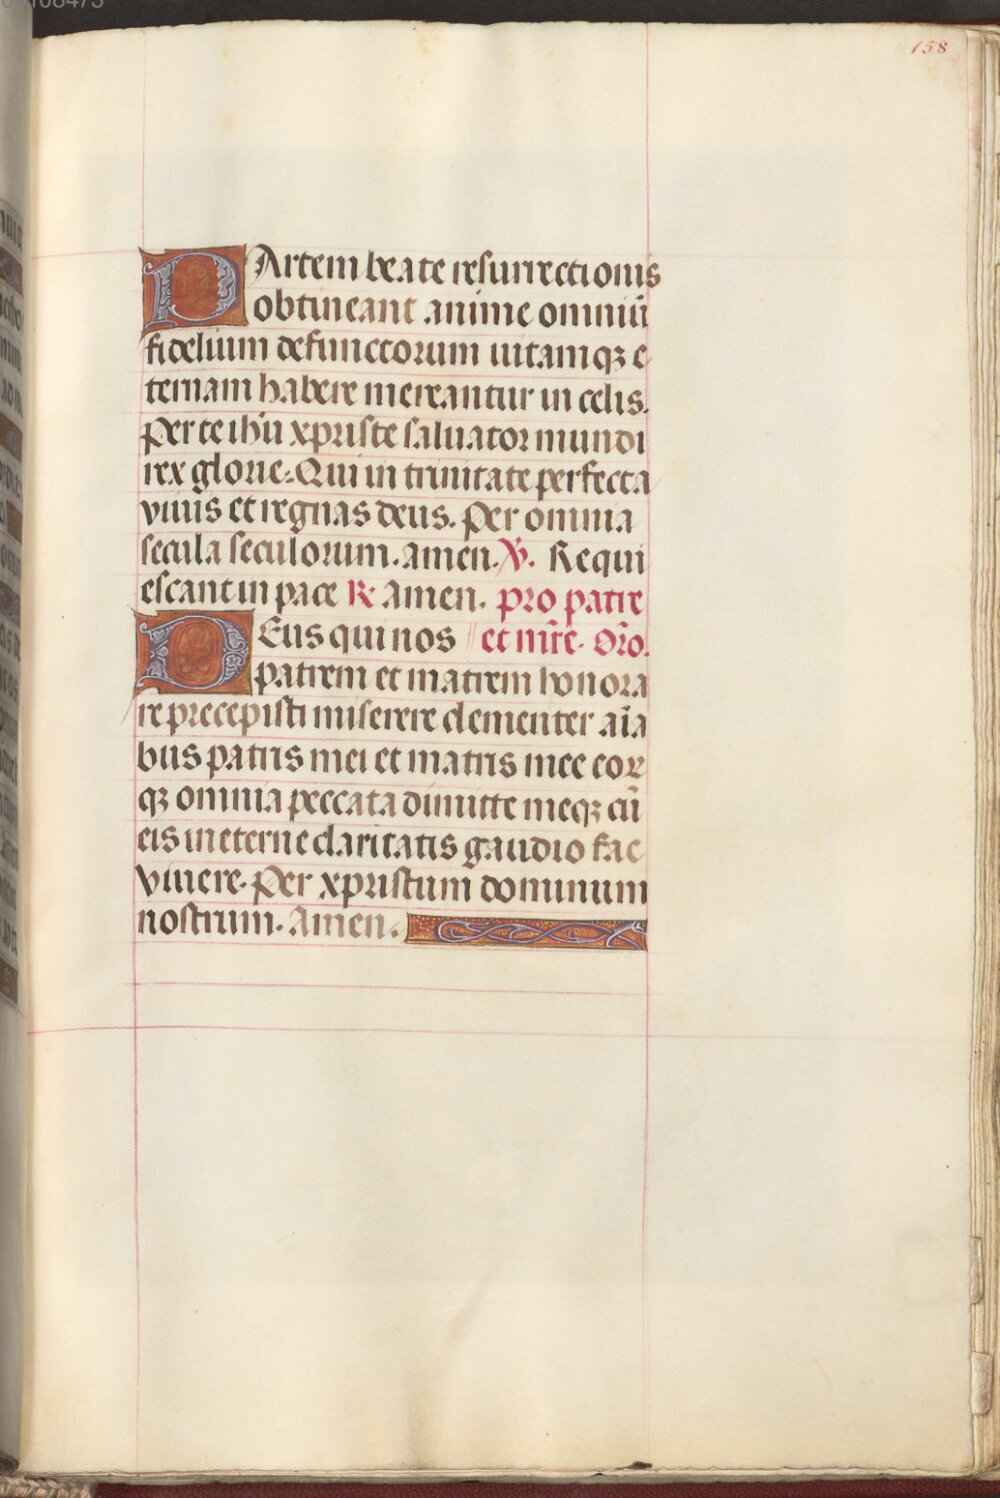 158
PArtem beate resurrectionis
obtineant anime omniū
fidelium defunctorum uitamqꝫ e
ternam habere mereantur in celis.
Per te ihū xpriste saluator mundi
rex glorie. Qui in trinitate perfecta
viuis et regnas deus. Per omnia
secula seculorum. amen. ℣. Requi
escant in pace ℟. Amen. pro patre
DEus qui nos et mr̄e. Oro.
patrem et matrem honora
re precepisti miserere clementer aīa
bus patris mei et matris mee eoꝝ
qꝫ omnia peccata dimitte meqꝫ cū
eis in eterne claritatis gaudio fac
viuere. Per xpristum dominum
nostrum. Amen.